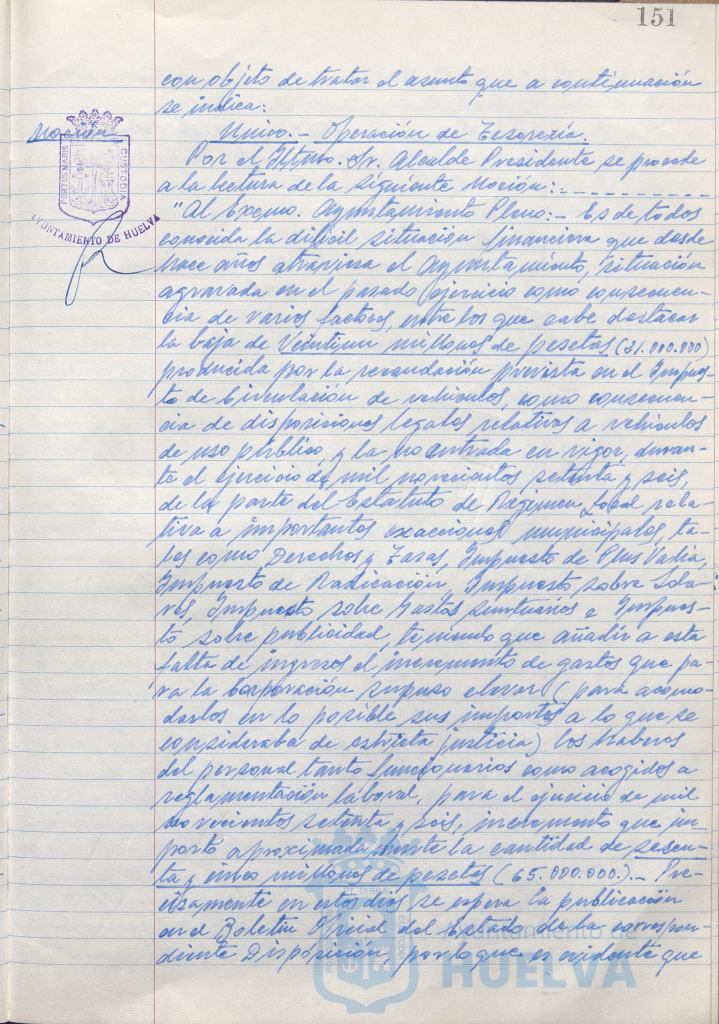 151
con objeto de tratar el asunto que a continuación
se indica:
Moción
Unico.- Operación de Tesorería.
Por el Iltmo. Sr. Alcalde Presidente se procede
a la lectura de la siguiente Moción:
PORTUS MARIS CUSTODIA
AYUNTAMIENTO DE HUELVA
"Al Excmo. Ayuntamiento Pleno:- Es de todos
conocida la difícil situación financiera que desde
hace años atraviesa el Ayuntamiento, situación
agravada en el pasado ejercicio como consecuen-
cia de varios factores, entre los que cabe destacar
la baja de Veintiun millones de pesetas (21.000.000)
producida por la recaudación prevista en el Impues-
to de Circulación de vehículos, como consecuen-
cia de disposiciones legales relativas a vehículos
de uso público, y la no entrada en vigor, duran-
te el ejercicio de mil novecientos setenta y seis,
de la parte del Estatuto de Régimen Local rela-
tiva a importantes exacciones municipales, ta-
les como Derechos y Tasas, Impuesto de Plus Valía,
Impuesto de Radicación, Impuesto sobre Sola-
res, Impuesto sobre Gastos suntuarios e Impues-
to sobre publicidad, teniendo que añadir a esta
falta de ingresos el incremento de gastos que pa-
ra la Corporación supuso elevar (para acomo-
darlos en lo posible sus importes a lo que se
consideraba de estricta justicia) los Haberes
del personal tanto funcionarios como acogidos a
reglamentación laboral, para el ejercicio de mil
novecientos setenta y seis, incremento que im-
portó aproximadamente la cantidad de sesen-
ta y cinco millones de pesetas (65.000.000).- Pre-
cisamente en estos dias se espera la publicación
en el Boletín Oficial del Estado de la correspon-
diente Disposición, por lo que es evidente que
Ayuntamiento de
HUELVA